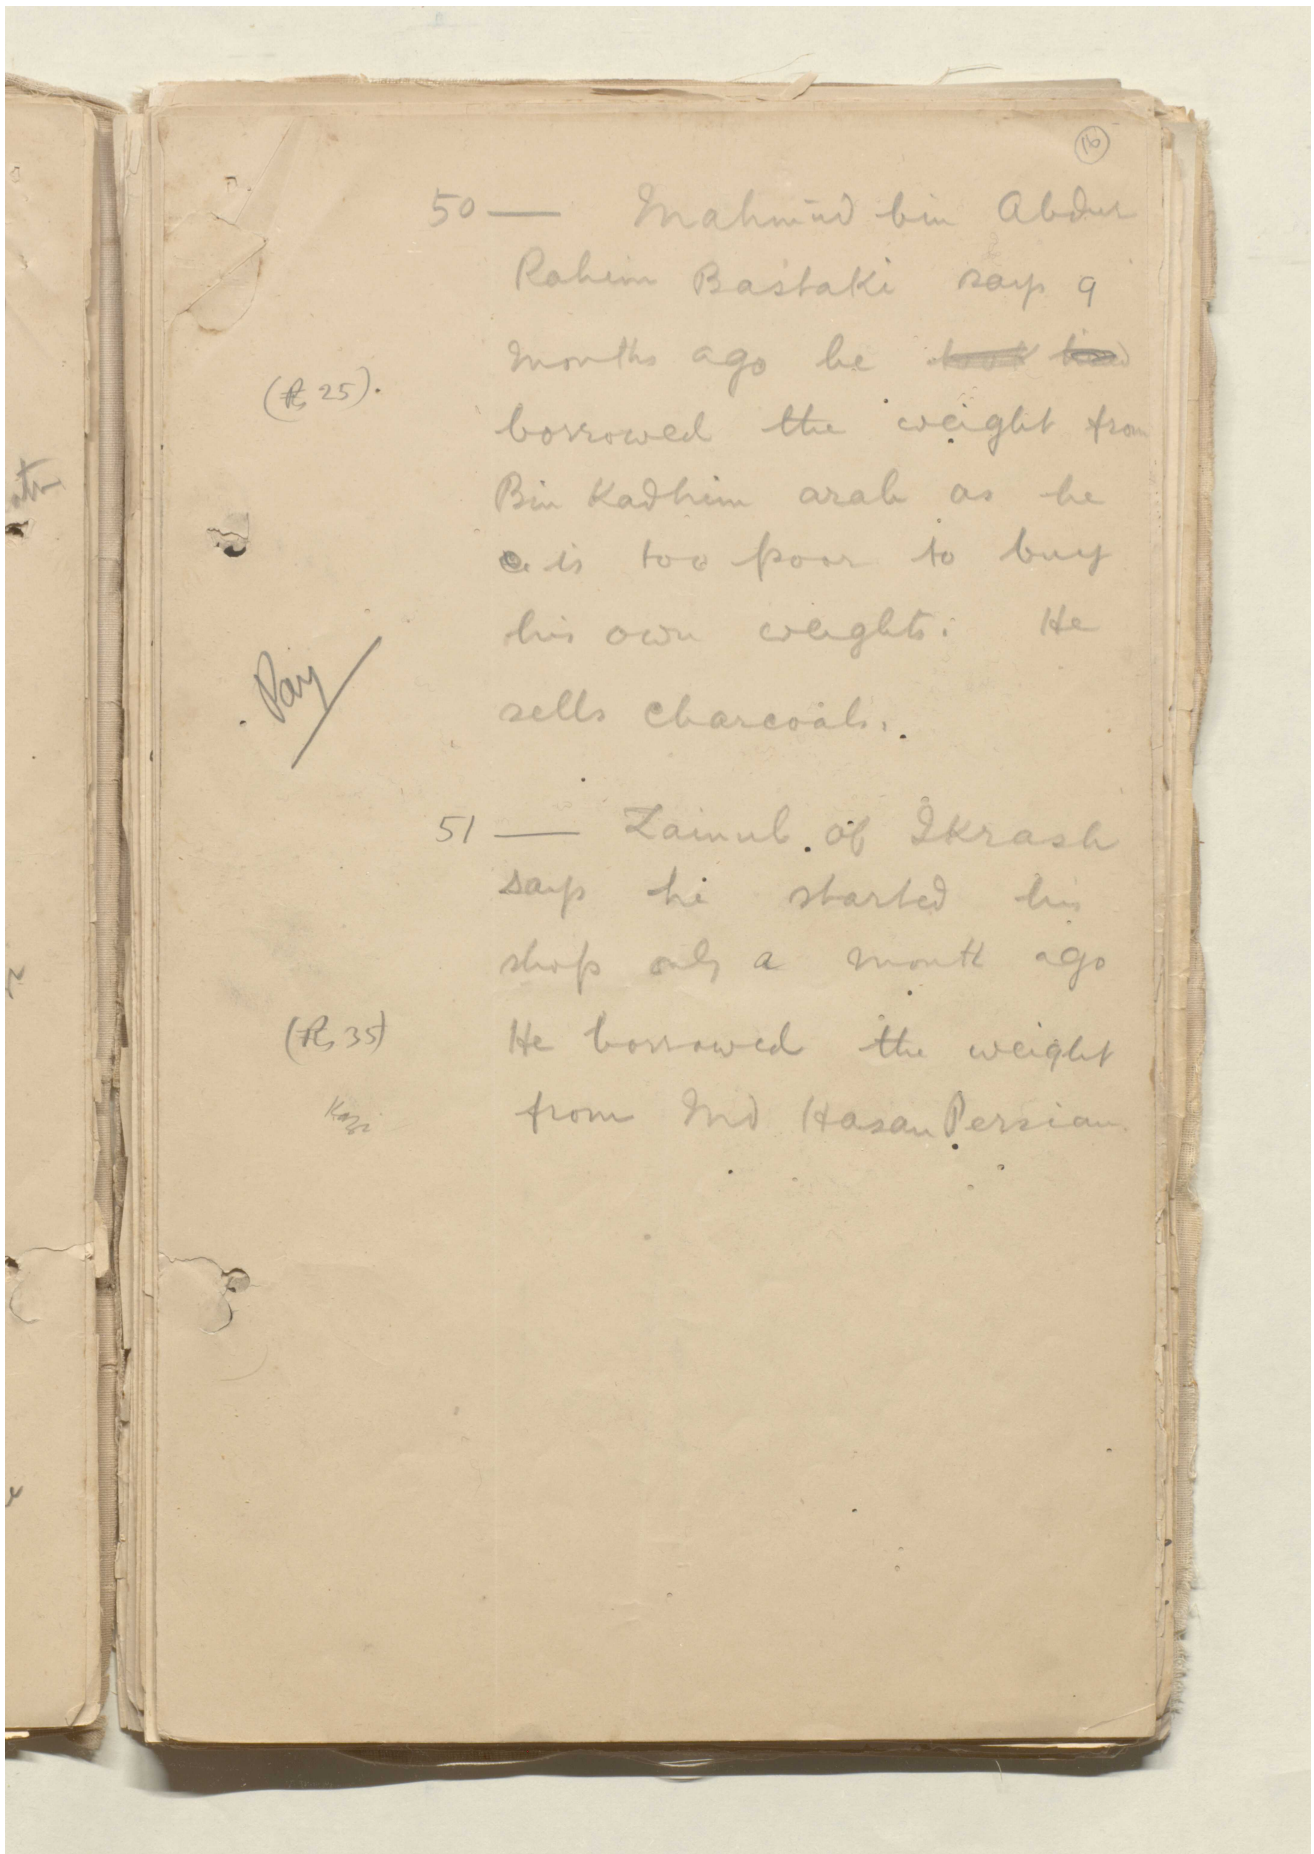 16
50 — Mahmūd bin Abdur
Rahim Bastaki says 9
months ago he took
(Rs 25).
borrowed the weight from
Bin Kadhim arab as he
is too poor to buy
his own weights. He
Pay
sells charcoals.
51 — Zainub of Ikrash
says he started his
shop only a month ago
(Rs 35)
He borrowed the weight
from Md Hasan Persian.
Kazi